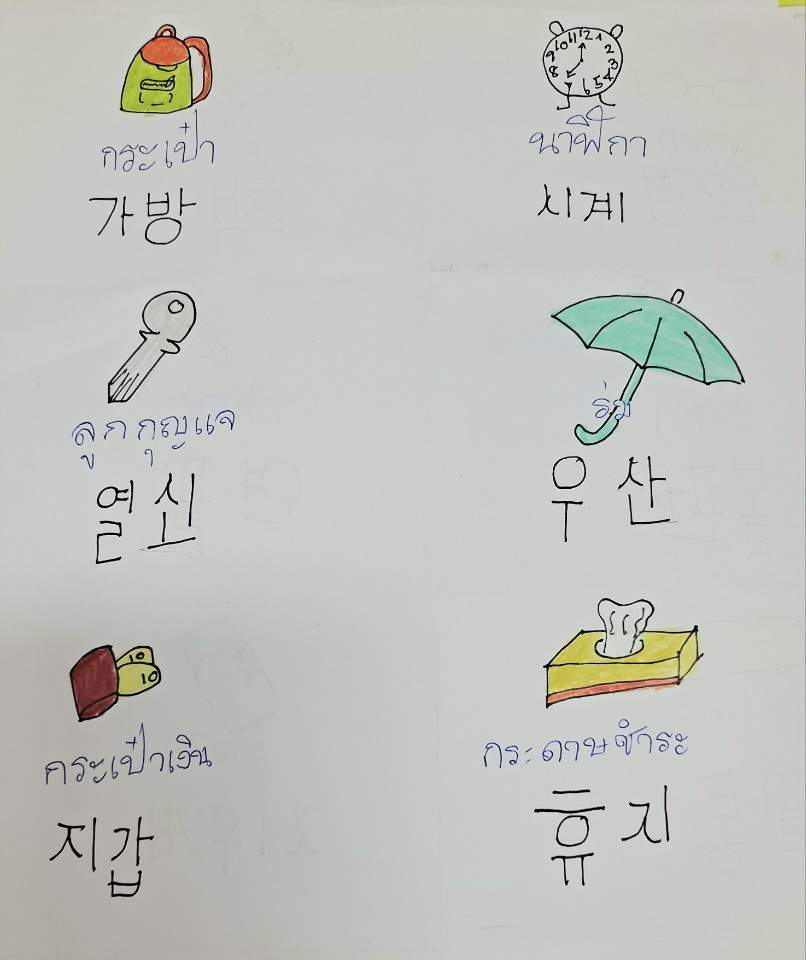 กระเป๋า
가방
12 1 2 3 4 5 6 8 9 10 11
นาฬิกา
시계
ลูกกุญแจ
열쇠
ร่ม
우산
10
10
กระเป๋าเงิน
지갑
กระดาษชำระ
휴지